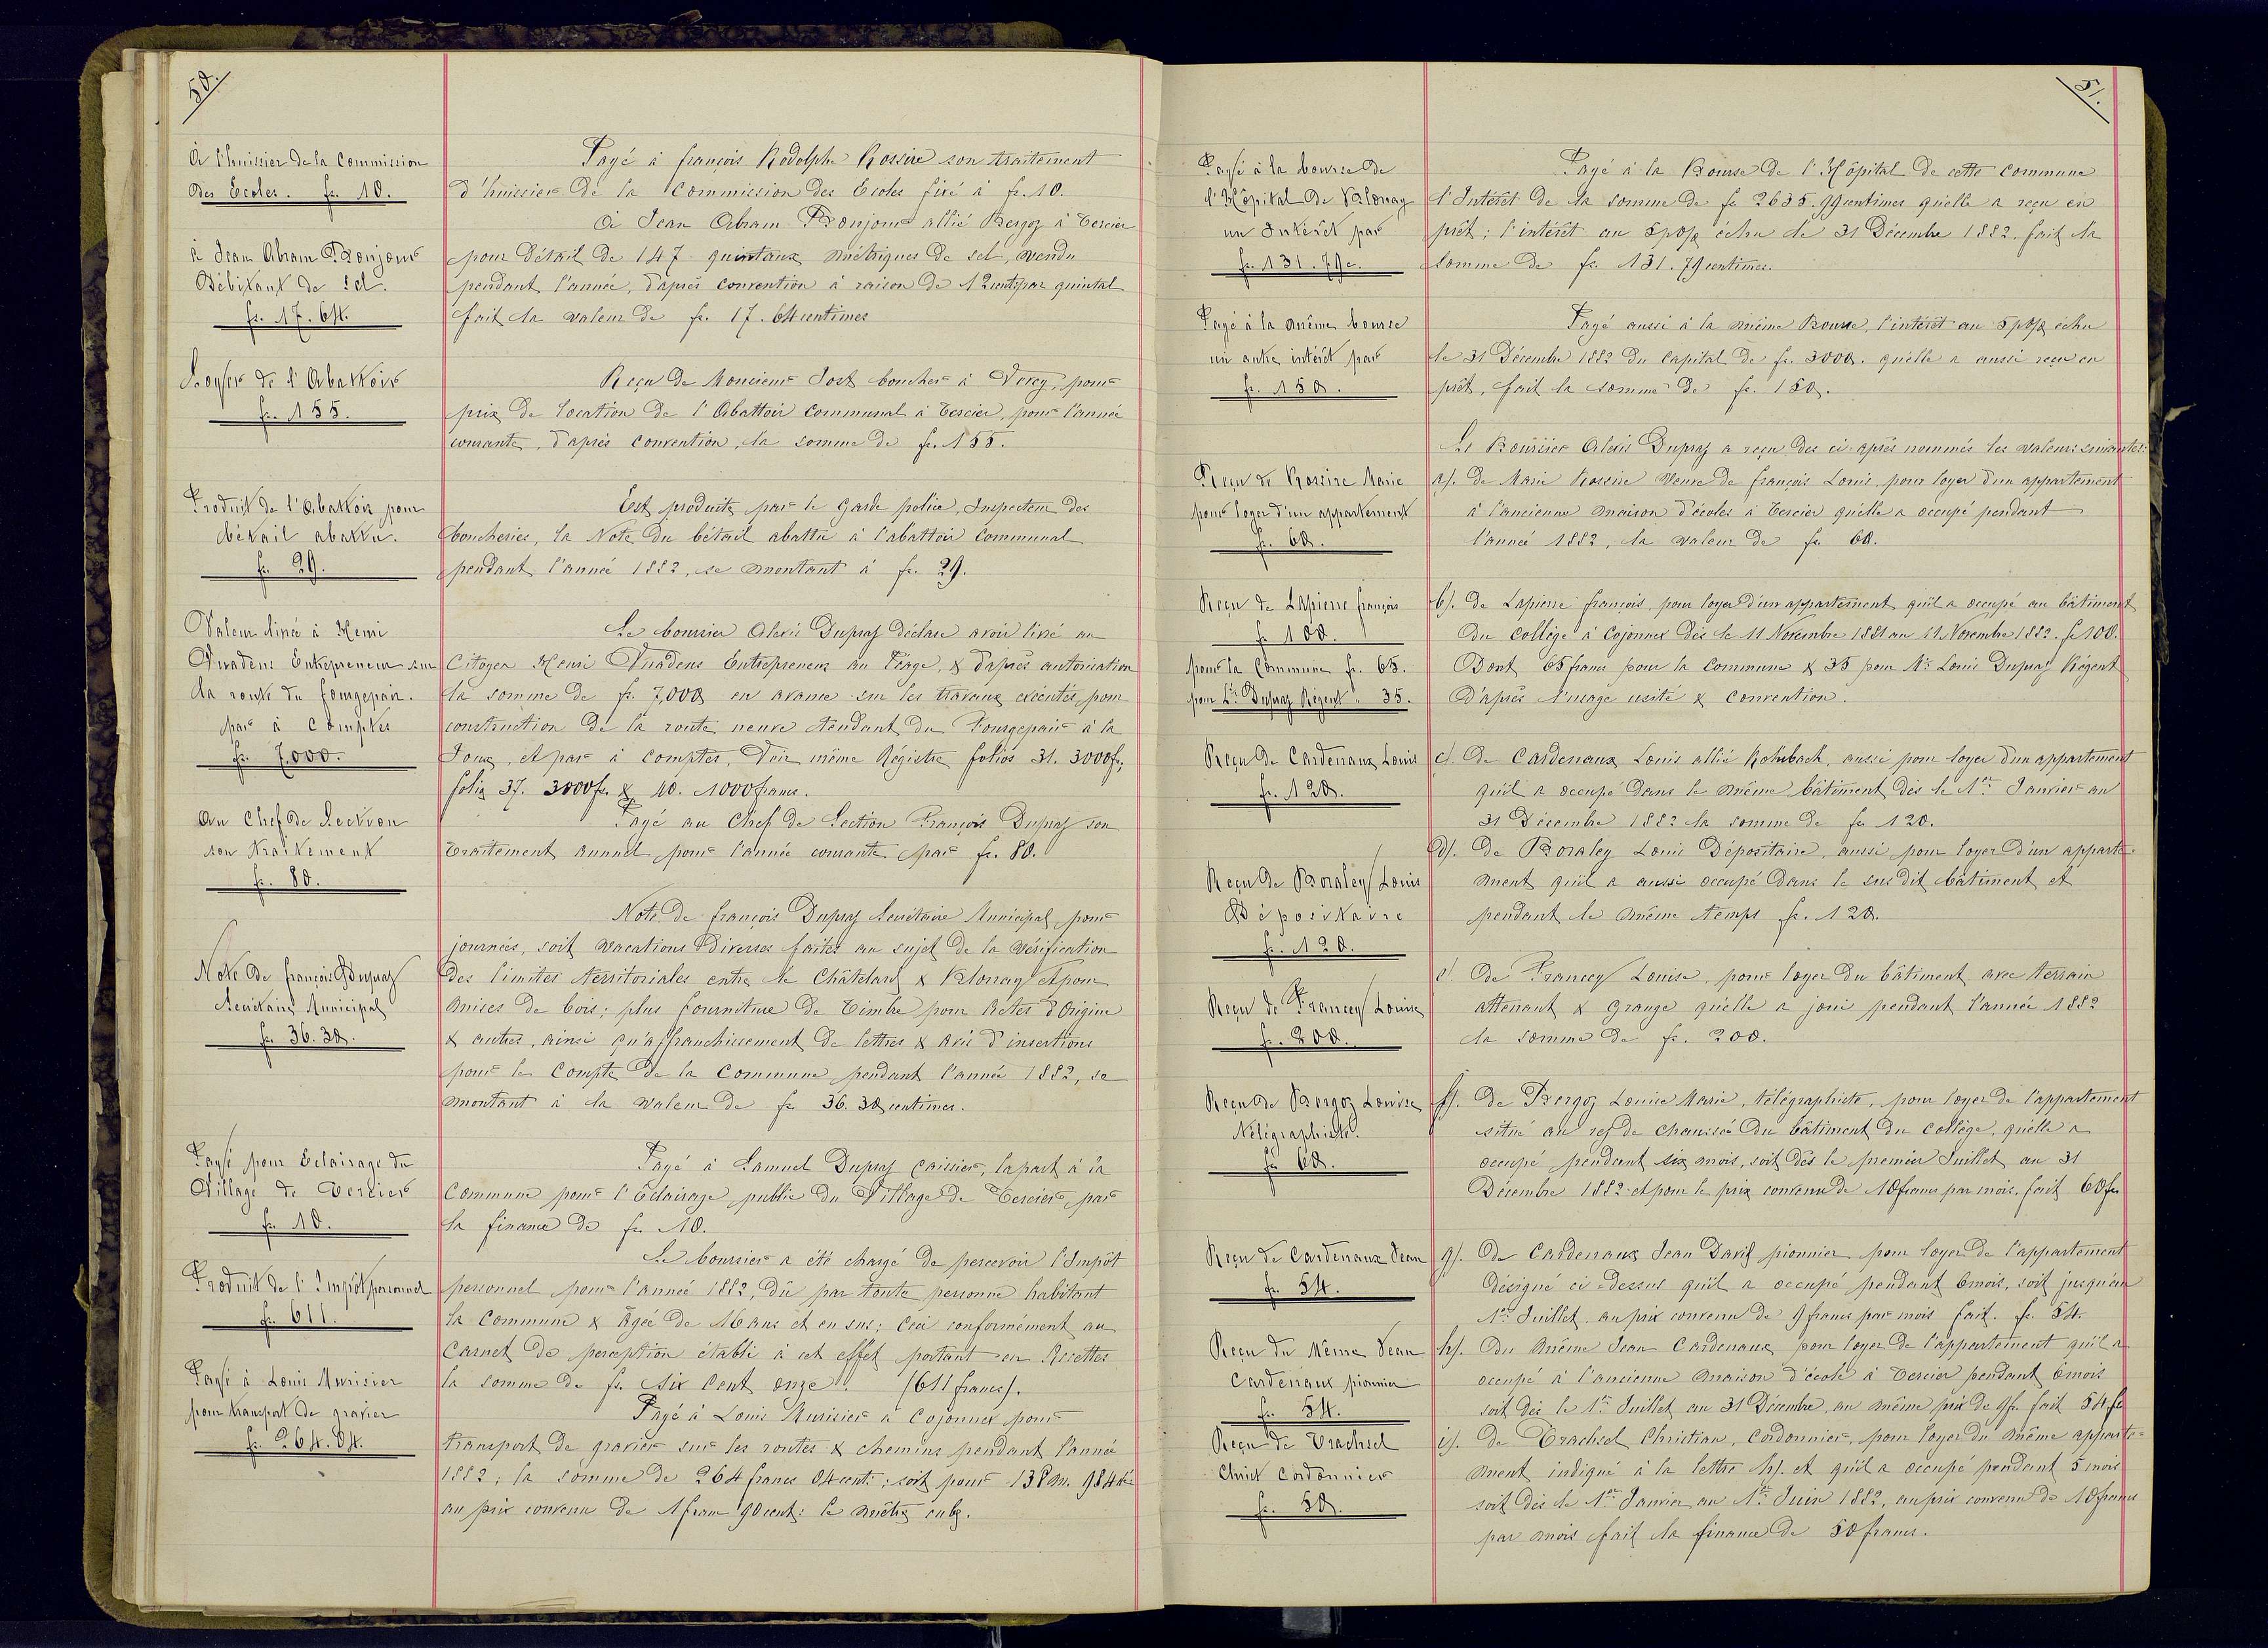 50.
À l'huissier de la Commission
des Ecoles. fr. 10.
Payé à françois Rodolphe Rossire son traitement
d'huissier de la Commission des Ecoles fixé à fr. 10.
à Jean Abram Bonjour
Débitant de sel.
fr. 17. 64.
À Jean Abram Bonjour allié Bergoz à Tercier
pour détail de 147 quintaux métriques de sel, vendu
pendant l'année, d'après convention à raison de 12 cent. par quintal
fait la valeur de fr. 17. 64 centimes
Loyer de l'Abattoir
fr. 155.
Reçu de Monsieur Jost boucher à Vevey, pour
prix de location de l'Abattoir communal à Tercier, pour l'année
courante, d'après convention, la somme de fr. 155.
Produit de l'Abattoir pour
bétail abattu.
fr. 29.
Est produite par le Garde police, Inspecteur des
boucheries, la Note du bétail abattu à l'abattoir communal
pendant l'année 1882, se montant à fr. 29.
Valeur livrée à Henri
Vuadens Entrepreneur sur
la route du fourgepair.
par à Comptes
fr. 7,000.
Le boursier Alexis Dupraz déclare avoir livré au
Citoyen Henri Vuadens Entrepreneur au Péage, & d'après autorisation
la somme de fr. 7,000 en avance sur les travaux exécutés pour
construction de la route neuve tendant du Fourgepair à la
Joux, et par à comptes, Voir même Régistre folios 31. 3000 fr,
folio 37. 3000 fr. & 40. 1000 francs.
Au Chef de Section
son traitement
fr. 80.
Payé au Chef de Section François Dupraz son
traitement annuel pour l'année courante par fr. 80.
Note de françois Dupraz
Secrétaire Municipal
fr. 36. 30.
Note de françois Dupraz Secrétaire Municipal, pour
journées, soit vacations diverses faites au sujet de la vérification
des limites territoriales entre le Châtelard & Blonay et pour
mises de bois; plus fourniture de Timbre pour Actes d'Origine
& autres, ainsi qu'affranchissement de lettres & avis d'insertions
pour le Compte de la Commune pendant l'année 1882, se
montant à la valeur de fr. 36. 30 centimes.
Payé pour Eclairage du
Village de Tercier
fr. 10.
Payé à Samuel Dupraz caissier, la part à la
Commune pour l'Eclairage public du Village de Tercier par
la finance de fr. 10.
Produit de l'Impôt personnel
fr. 611.
Le boursier a été chargé de percevoir l'Impôt
personnel pour l'année 1882, dû par toute personne habitant
la Commune & âgée de 16 ans et en sus; Ceci conformément au
Carnet de perception établi à cet effet portant en Recettes
la somme de fr. Six Cent onze. (611 francs).
Payé à Louis Murisier
pour transport de gravier
fr. 264. 04.
Payé à Louis Murisier à Cojonnex pour
transport de gravier sur les routes & chemins pendant l'année
1882; la somme de 264 francs 04 cent: soit pour 138 m. 984
au prix convenu de 1 franc 90 cent: le mètre cube.
51.
Payé à la bourse de
l'Hôpital de Blonay
un Intérêt par
fr. 131. 79 c.
Payé à la Bourse de l'Hôpital de cette commune
l'Intérêt de la somme de fr. 2635. 99 centimes qu'elle a reçu en
prêt; l'intérêt au 5 p% échu le 31 Décembre 1882. fait la
somme de fr. 131. 79 centimes.
Payé à la même bourse
un autre intérêt par
fr. 150.
Payé aussi à la même Bourse, l'intérêt au 5 p% échu
le 31 Décembre 1882 du Capital de fr. 3000. qu'elle a aussi reçu en
prêt, fait la somme de fr. 150.
Le Boursier Alexis Dupraz a reçu des ci-après nommés les valeurs suivantes:
Reçu de Rossire Marie
pour loyer d'un appartement
fr. 60.
a). de Marie Rossire Veuve de françois Louis, pour loyer d'un appartement
à l'ancienne maison d'écoles à Tercier qu'elle a occupé pendant
l'année 1882, la valeur de fr. 60.
Reçu de Lapierre françois
fr. 100.
pour la Commune fr. 65.
pour Ls. Dupraz Régent " 35.
b). De Lapierre françois, pour loyer d'un appartement qu'il a occupé au bâtiment
du Collège à Cojonnex dès le 11 Novembre 1881 au 11 Novembre 1882. fr 100.
Dont 65 francs pour la Commune & 35 pour Mr. Louis Dupraz Régent
d'après l'usage usité & convention.
Reçu de Cardenaux Louis
fr. 120.
c). De Cardenaux Louis allié Rohrbach, aussi pour loyer d'un appartement
qu'il a occupé dans le même bâtiment dès le 1er Janvier au
31 Décembre 1882 la somme de fr. 120.
Reçu de Boraley Louis
Dépositaire
fr. 120.
d). De Boraley Louis Dépositaire, aussi pour loyer d'un apparte-
ment qu'il a aussi occupé dans le sus dit bâtiment et
pendant le même temps fr. 120.
Reçu de Francey Louise
fr. 200.
e). De Francey Louise, pour loyer du bâtiment avec terrain
attenant & Grange qu'elle a joui pendant l'année 1882
la somme de fr. 200.
Reçu de Bergoz Louise
télégraphiste.
fr. 60.
f). De Bergoz Louise Marie, télégraphiste, pour loyer de l'appartement
situé au rez de chaussée du bâtiment du collège, qu'elle a
occupé pendant six mois, soit dès le premier Juillet au 31
Décembre 1882 et pour le prix convenu de 10 francs par mois, fait 60 fr.
Reçu de Cardenaux Jean
fr. 54.
g). De Cardenaux Jean David pionnier pour loyer de l'appartement
désigné ci-dessus qu'il a occupé pendant 6 mois, soit jusqu'au
1er Juillet au prix convenu de 9 francs par mois fait. fr. 54.
Reçu du Même Jean
Cardenaux pionnier
fr. 54.
h). Du même Jean Cardenaux pour loyer de l'appartement qu'il a
occupé à l'ancienne maison d'école à Tercier pendant 6 mois
soit dès le 1er Juillet au 31 Décembre, au même prix de 9 fr. fait 54 fr
Reçu de Trachsel
Christ Cordonnier
fr. 50.
i). De Trachsel Christian, Cordonnier, pour loyer du même apparte-
ment indiqué à la lettre h). et qu'il a occupé pendant 5 mois
soit dès le 1er Janvier au 1er Juin 1882, au prix convenu de 10 francs
par mois fait la finance de 50 francs.